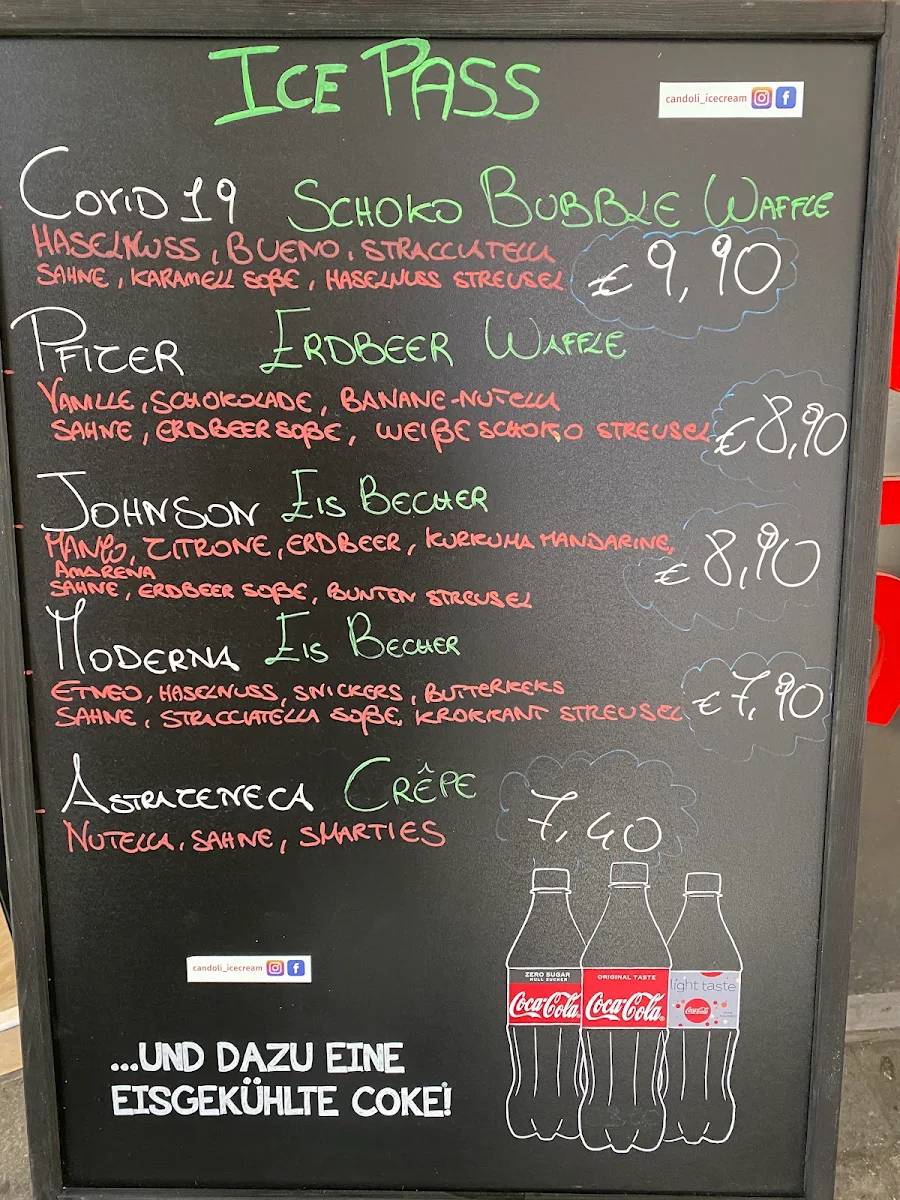 ICE PASS
candoli_icecream
COVID 19 SCHOKO BUBBLE WAFFLE
HASELNUSS, BUENO, STRACCIATELLA
SAHNE, KARAMELL SOßE, HASELNUSS STREUSEL
€ 9,90
PFIZER ERDBEER WAFFLE
VANILLE, SCHOKOLADE, BANANE-NUTELLA
SAHNE, ERDBEER SOßE, WEIßE SCHOKO STREUSEL
€ 8,90
JOHNSON EIS BECHER
MANGO, ZITRONE, ERDBEER, KURKUMA MANDARINE,
AMARENA
SAHNE, ERDBEER SOßE, BUNTEN STREUSEL
€ 8,90
MODERNA EIS BECHER
ETNEO, HASELNUSS, SNICKERS, BUTTERKEKS
SAHNE, STRACCIATELLA SOßE, KROKKANT STREUSEL
€ 7,90
ASTRAZENECA CRÊPE
7,40
NUTELLA, SAHNE, SMARTIES
candoli_icecream
ZERO SUGAR
NULL ZUCKER
Coca-Cola
ORIGINAL TASTE
Coca-Cola
light taste
Coca-Cola
...UND DAZU EINE
EISGEKÜHLTE COKE!